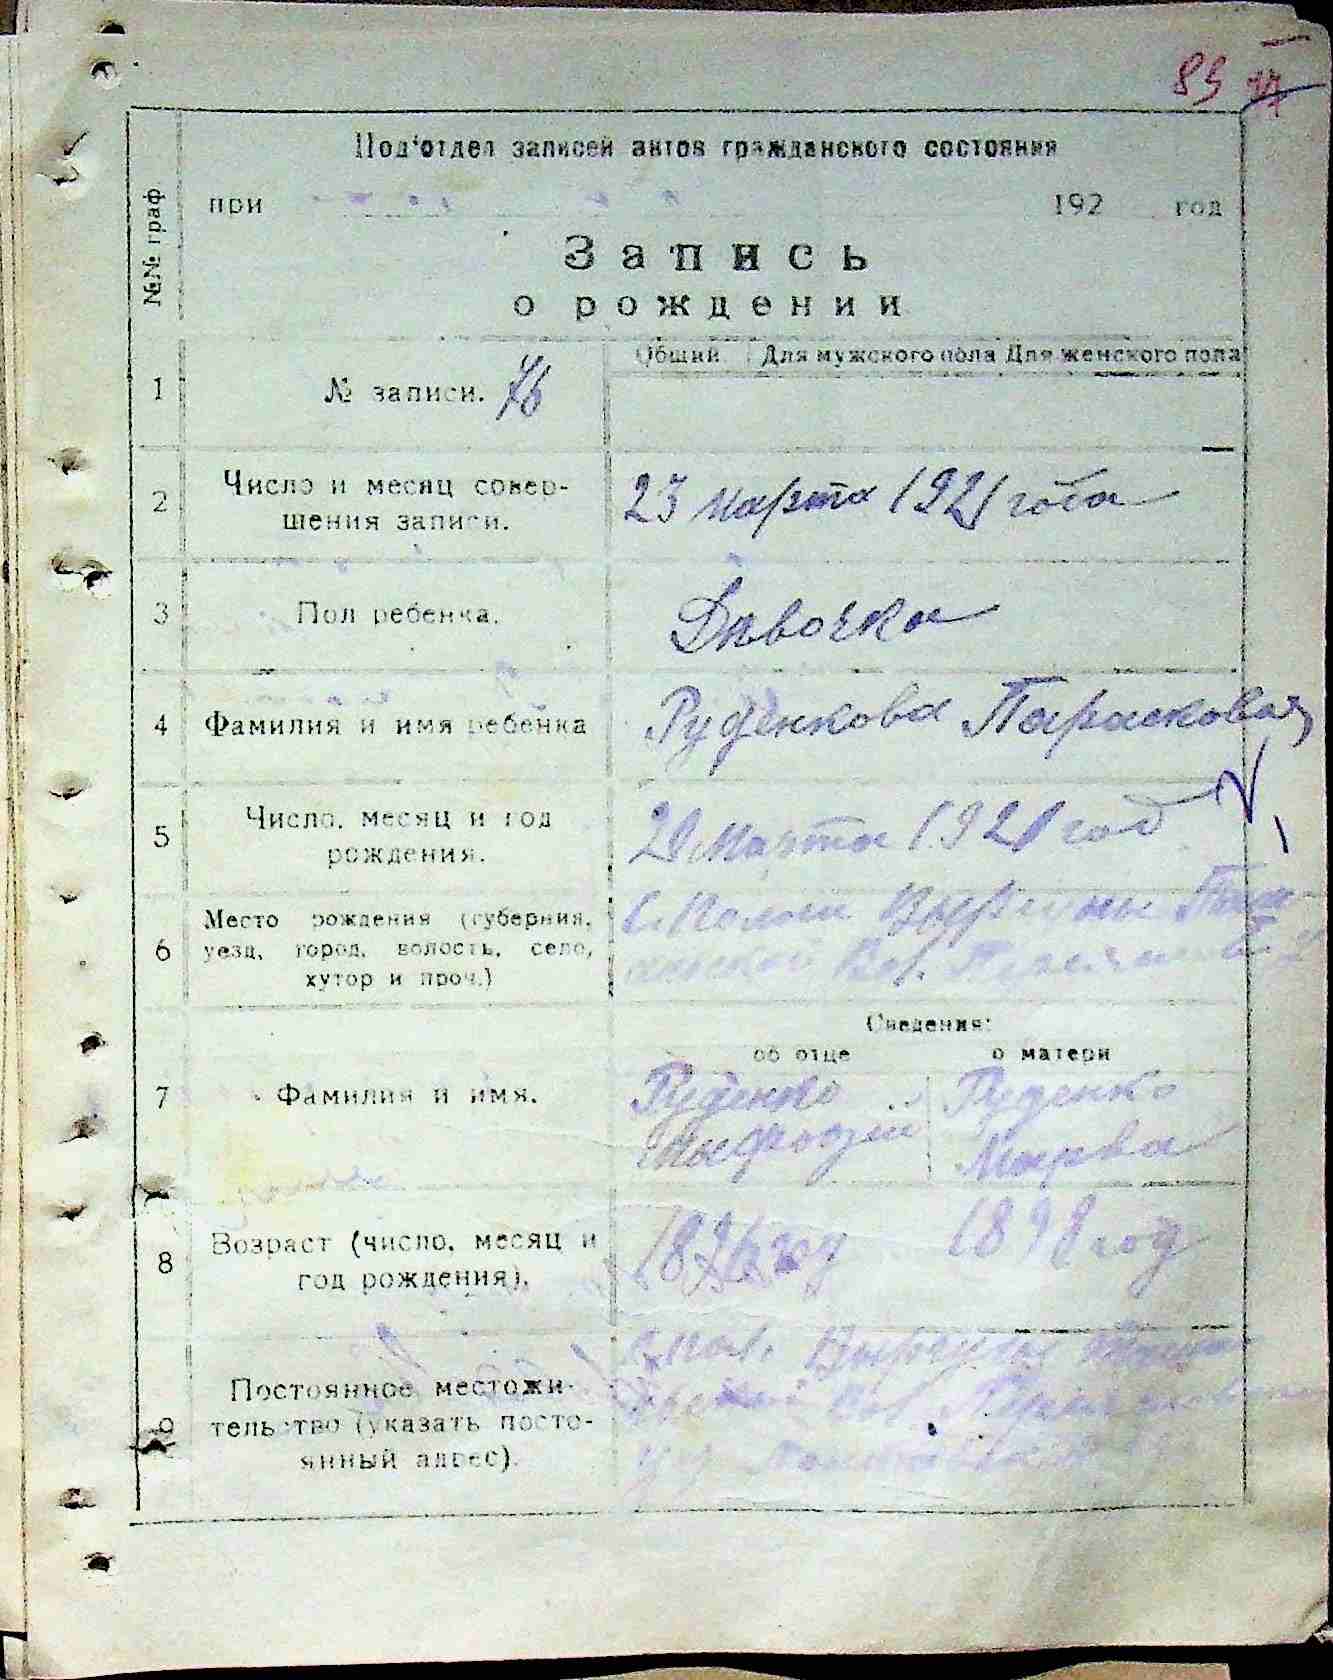 89 17
Под'отдел записей актов гражданского состояния
при 192 год
№№ граф
Запись
о рождении
Общий. Для мужского пола Для женского пола
1 № записи. 76
2 Число и месяц совер-
шения записи.
23 марта 1921 года
3 Пол ребенка.
Дивочка
4 Фамилия и имя ребенка
Руденкова Парасковая
5 Число, месяц и год
рождения.
20 Марта 1921 год
6 Место рождения (губерния,
уезд, город, волость, село,
хутор и проч.)
С. Вол.
Сведения:
об отце о матери
7 Фамилия и имя.
Руденко Руденко
Марва
8 Возраст (число, месяц и
год рождения).
1896 год 1898 год
9 Постоянное местожи-
тельство (указать посто-
янный адрес).